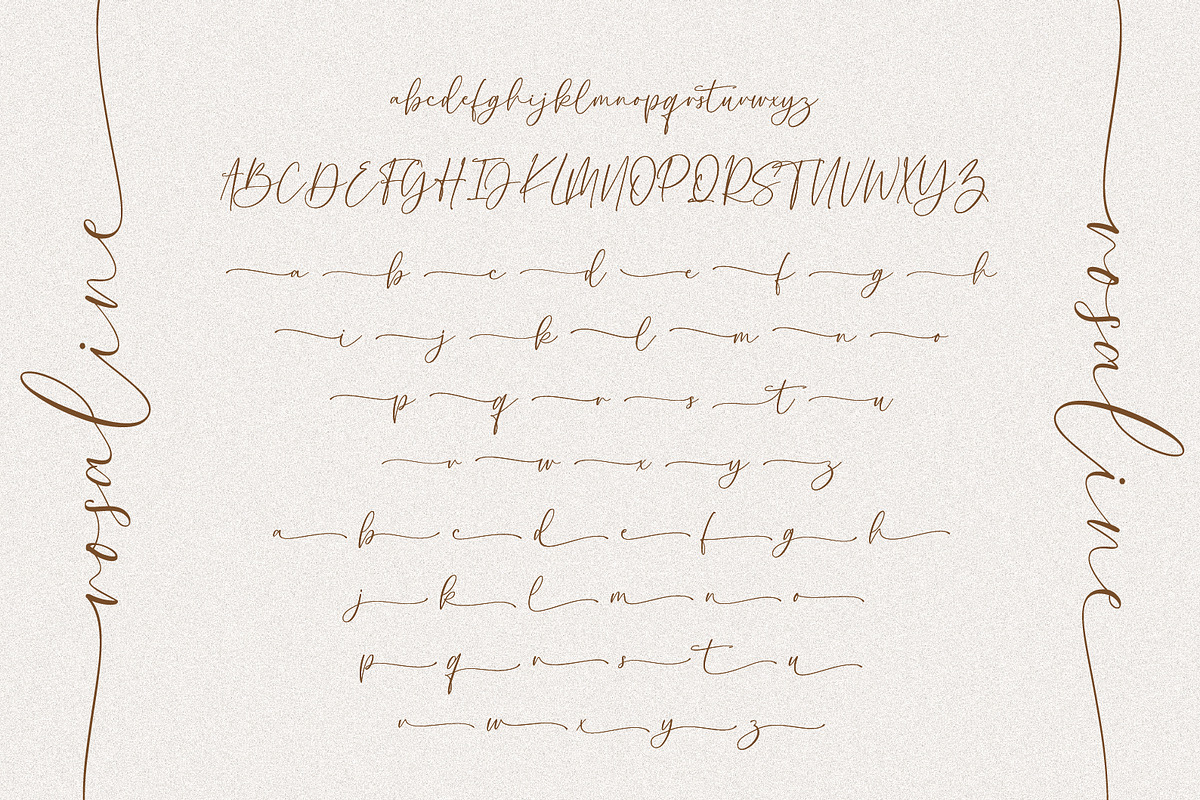 rosaline
abcdefghijklmnopqrstuvwxyz
ABCDEFGHIJKLMNOPQRSTUVWXYZ
a b c d e f g h
i j k l m n o
p q r s t u
v w x y z
a b c d e f g h
j k l m n o
p q r s t u
v w x y z
rosaline